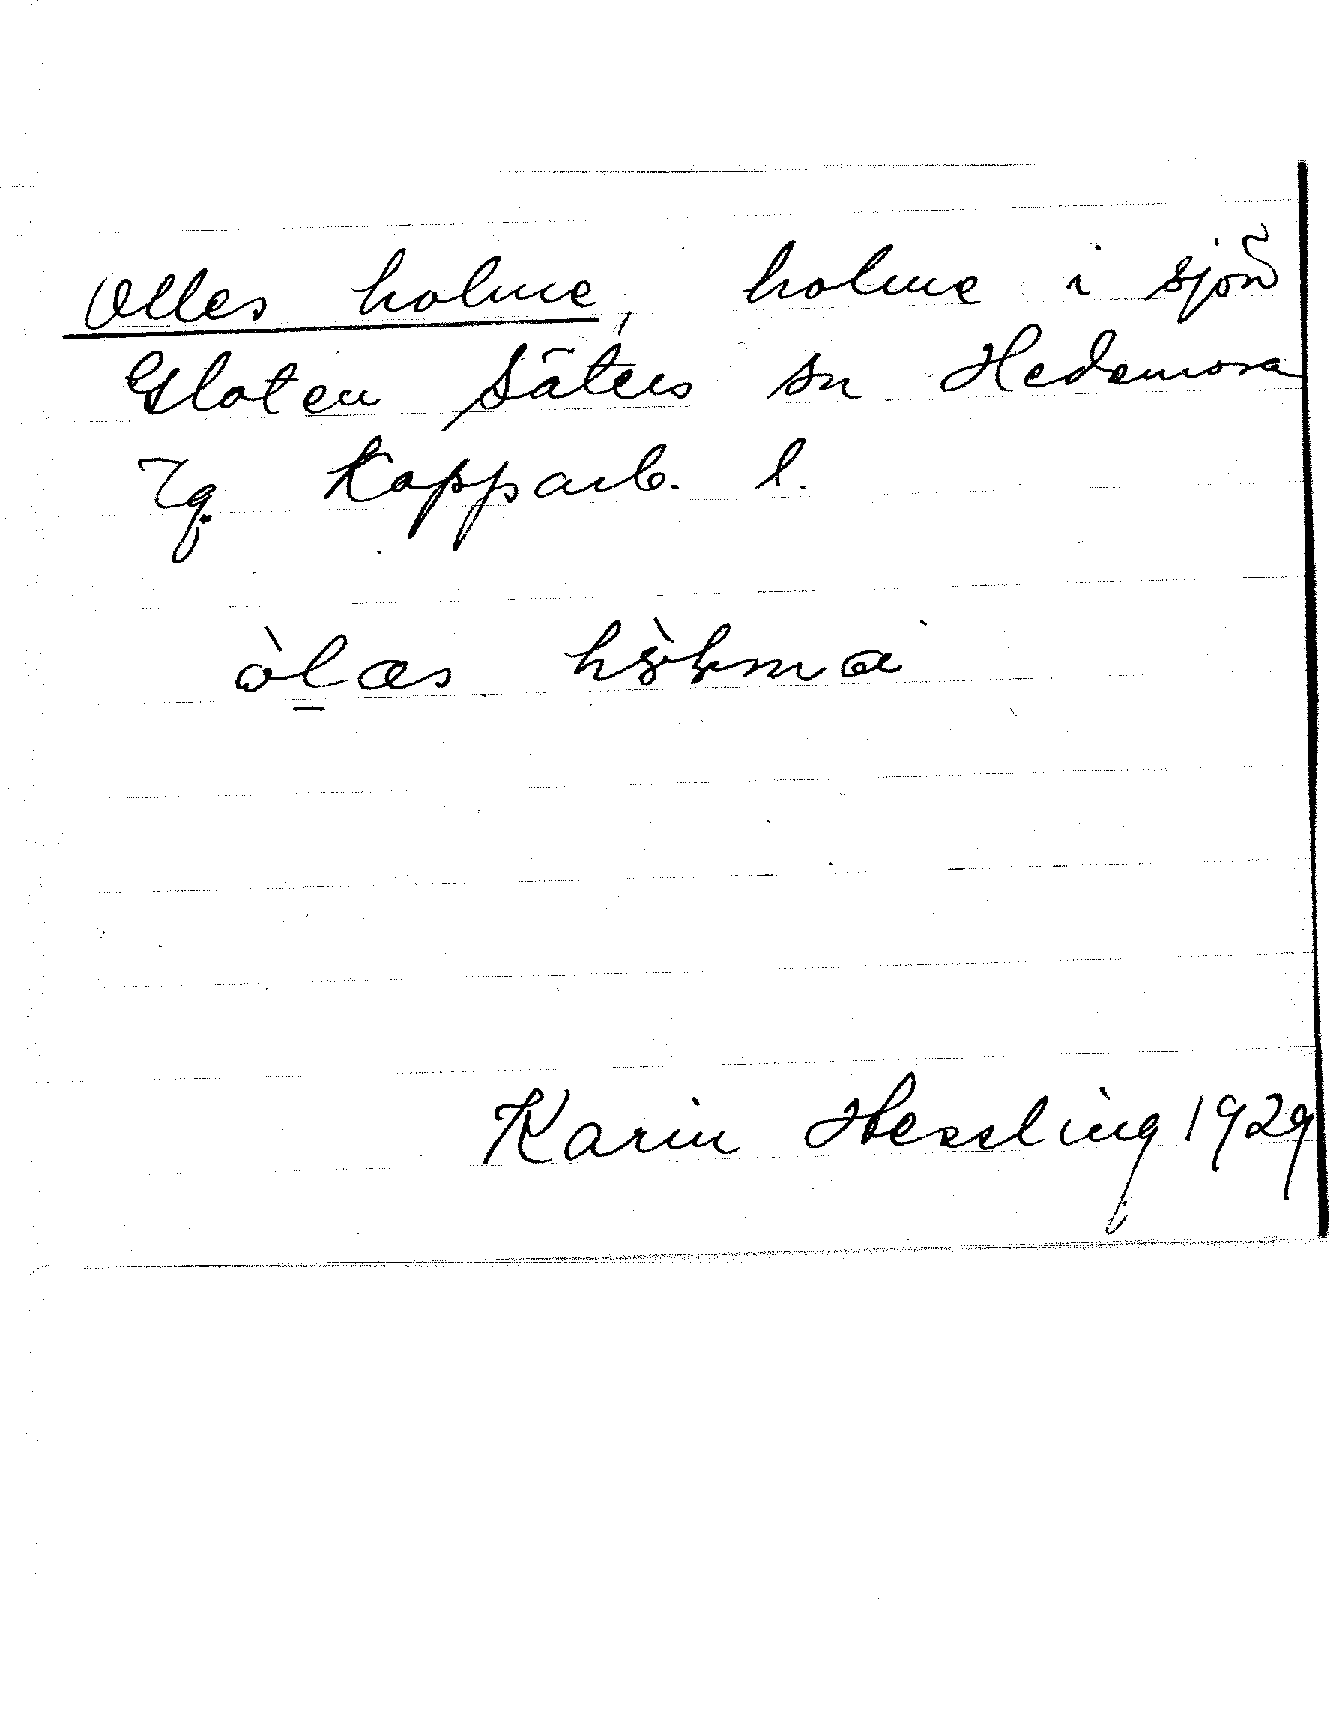 Olles holme, holme i sjön
Gloten Säters sn Hedemora
Tg. Kopparb. l.
òlas
Karin Hessling 1929